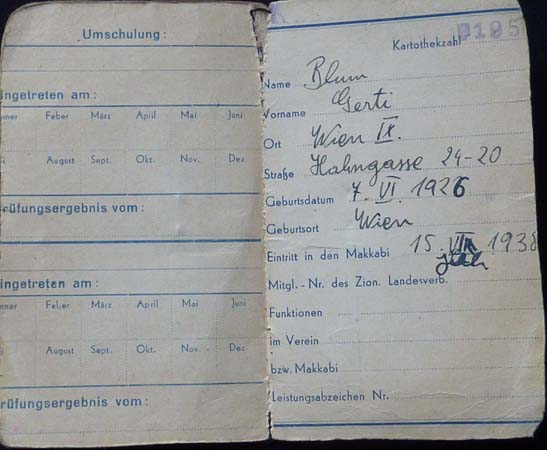 Umschulung:
ingetreten am:
nner Feber März April Mai Juni
li August Sept. Okt. Nov. Dez.
rüfungsergebnis vom:
ingetreten am:
nner Feber März April Mai Juni
li August Sept. Okt. Nov. Dez.
rüfungsergebnis vom:
Kartothekzahl
Name Blum
Vorname Gerti
Ort Wien IX.
Straße Hahngasse 24-20
Geburtsdatum 7. VI. 1926
Geburtsort Wien
Eintritt in den Makkabi 15. VII. 1938
Mitgl.-Nr. des Zion. Landesverb.
Funktionen
im Verein
bzw. Makkabi
Leistungsabzeichen Nr.